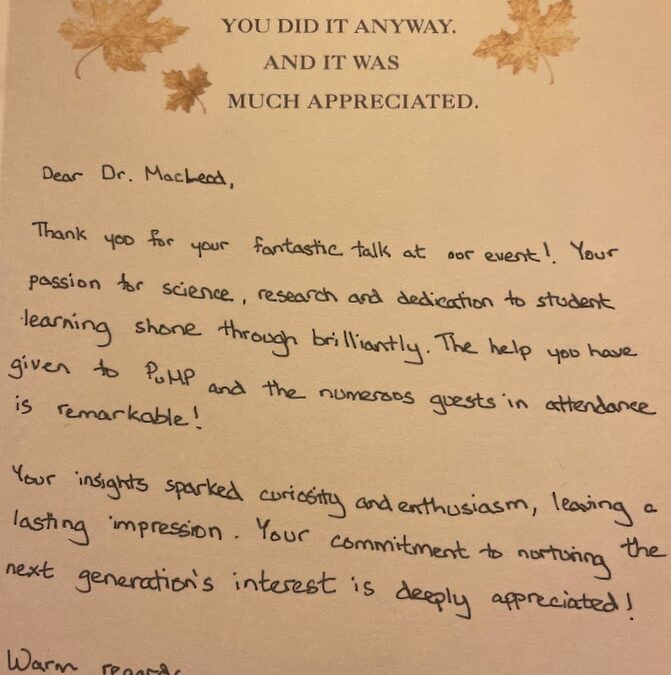 YOU DID IT ANYWAY.
AND IT WAS
MUCH APPRECIATED.
Dear Dr. MacLeod,
Thank you for your fantastic talk at our event! Your
passion for science, research and dedication to student
learning shone through brilliantly. The help you have
given to PuMP and the numerous guests in attendance
is remarkable!
Your insights sparked curiosity and enthusiasm, leaving a
lasting impression. Your commitment to nurturing the
next generation's interest is deeply appreciated!
Warm regards